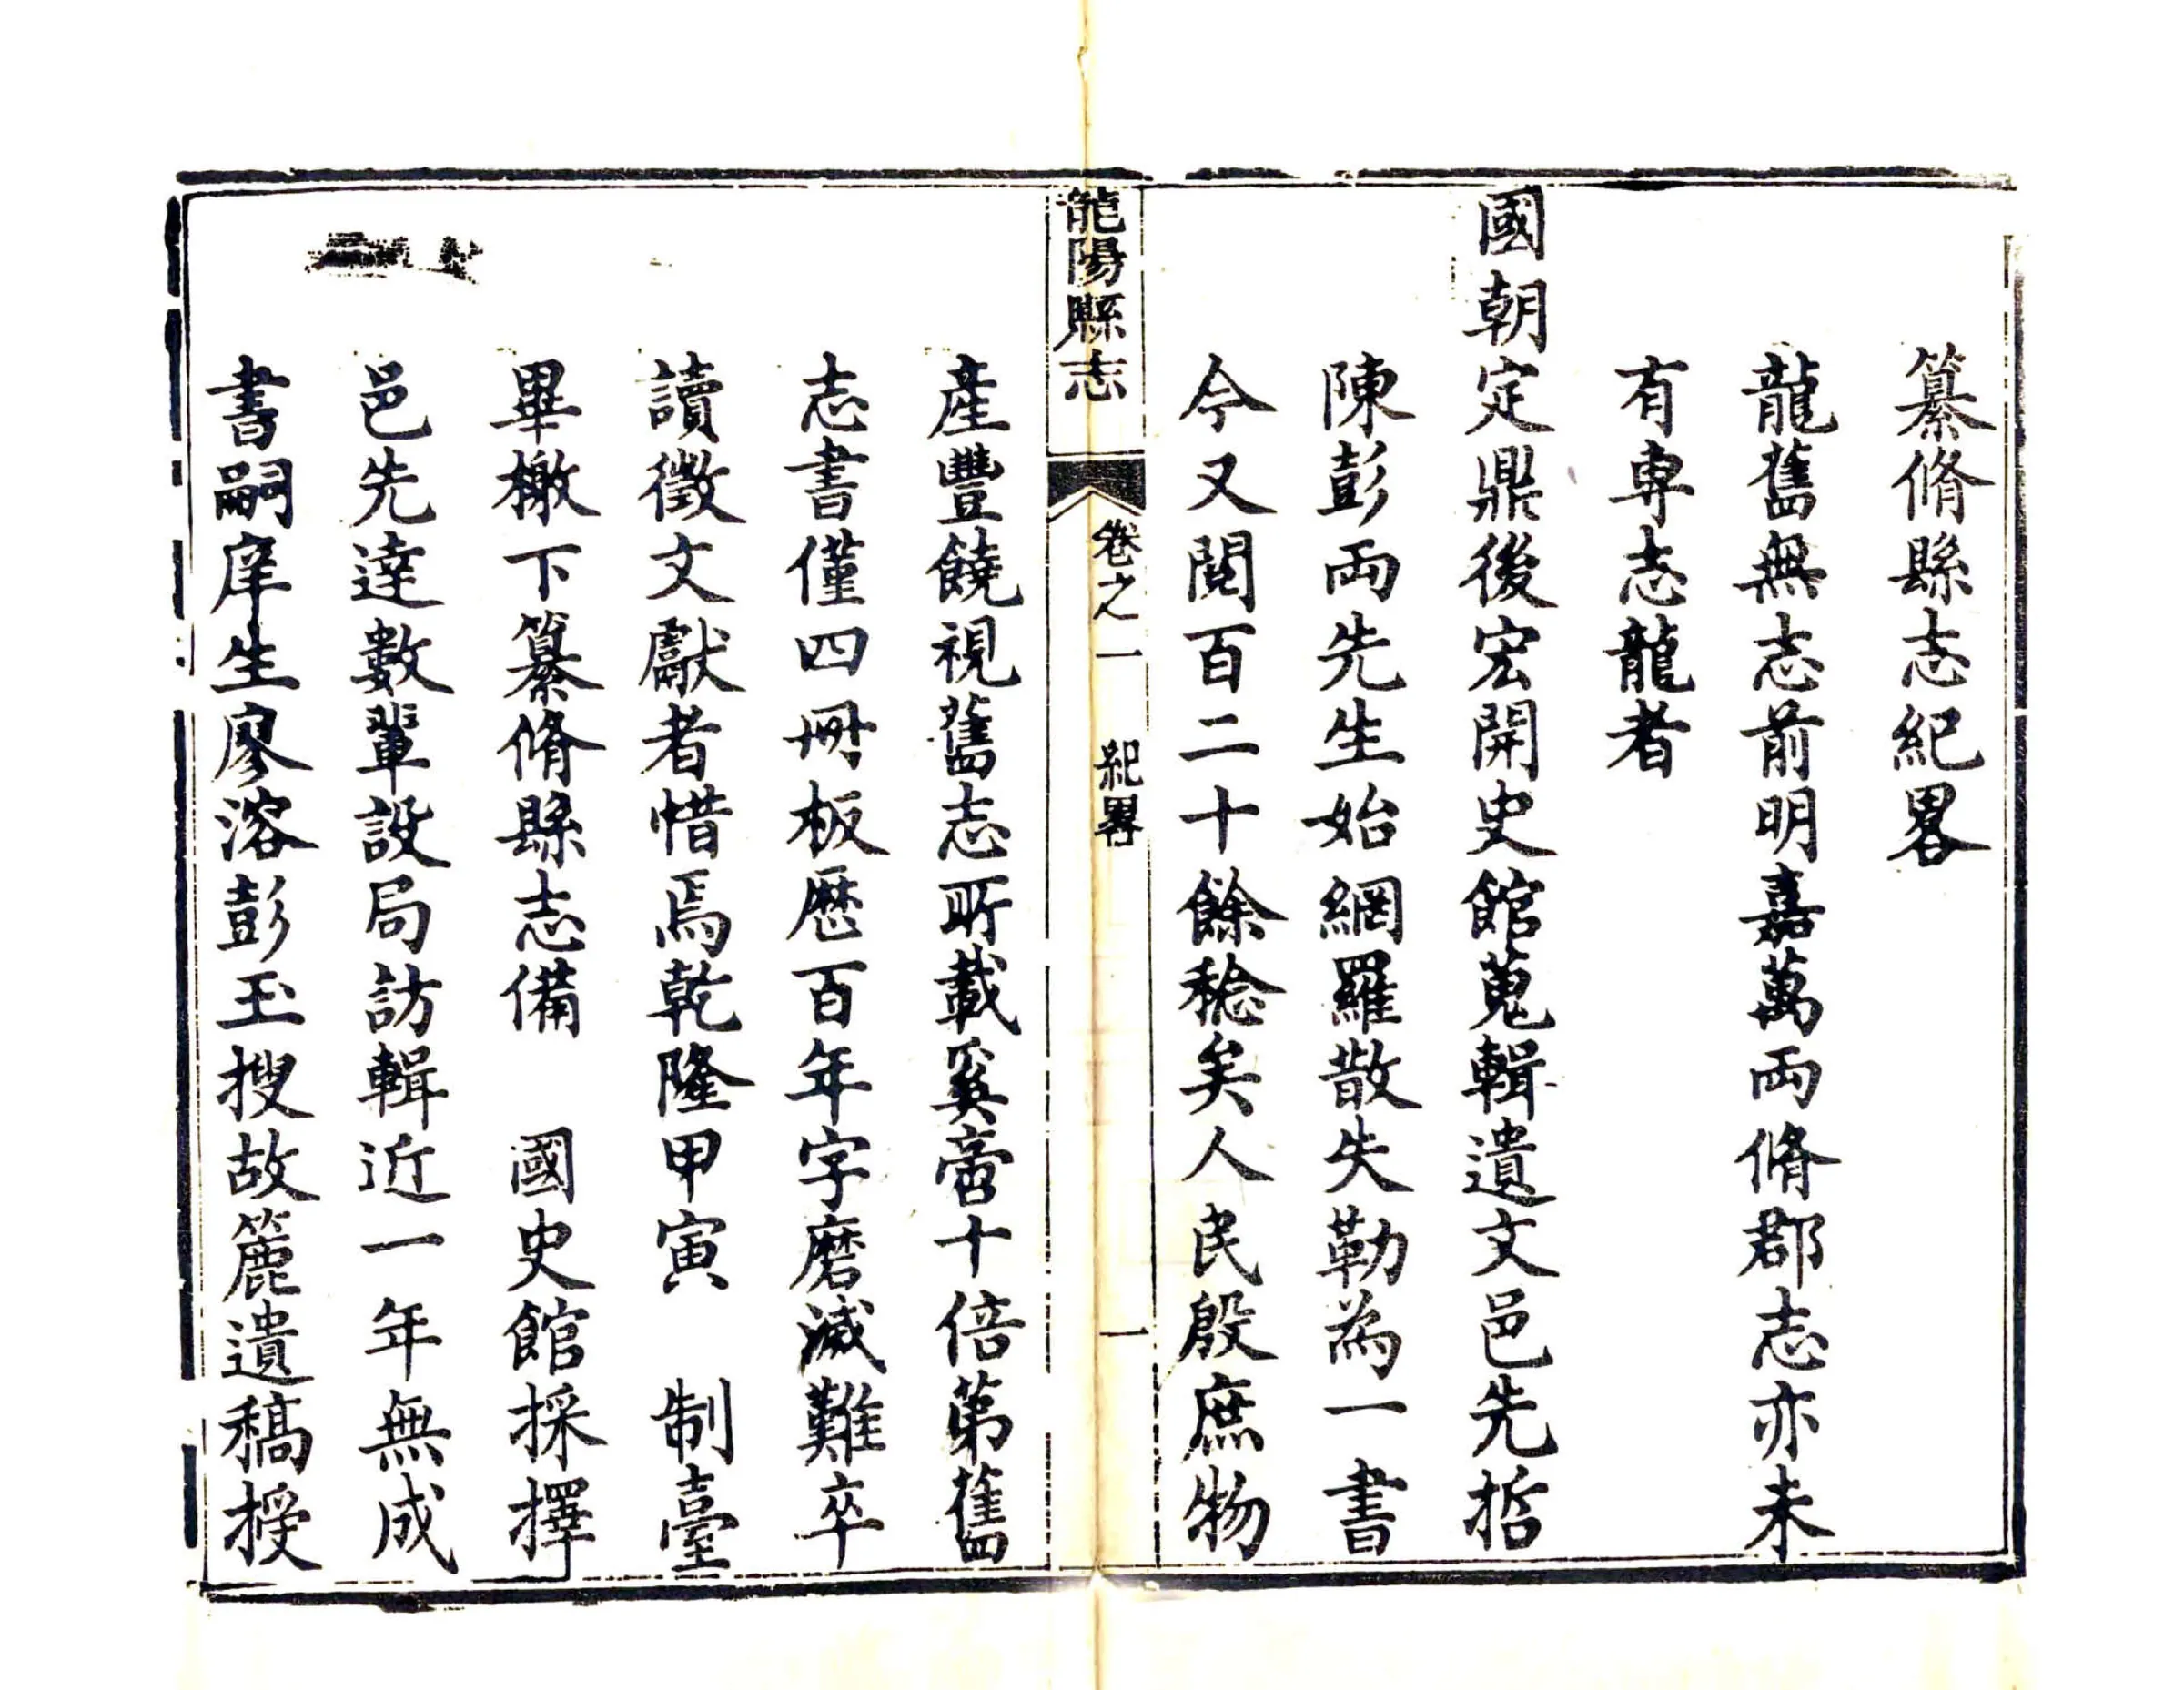 纂脩縣志紀畧
龍舊無志前明嘉萬兩脩郡志亦未
有專志龍者
國朝定鼎後宏開史館蒐輯遺文邑先哲
陳彭兩先生始網羅散失勒為一書
今又閱百二十餘稔矣人民殷庶物
龍陽縣志 卷之一 紀畧 一
產豐饒視舊志所載奚啻十倍第舊
志書僅四冊板歷百年字磨滅難卒
讀徵文獻者惜焉乾隆甲寅 制臺
畢檄下纂脩縣志備 國史館採擇
邑先達數輩設局訪輯近一年無成
書嗣庠生廖溶彭玉搜故簏遺稿授